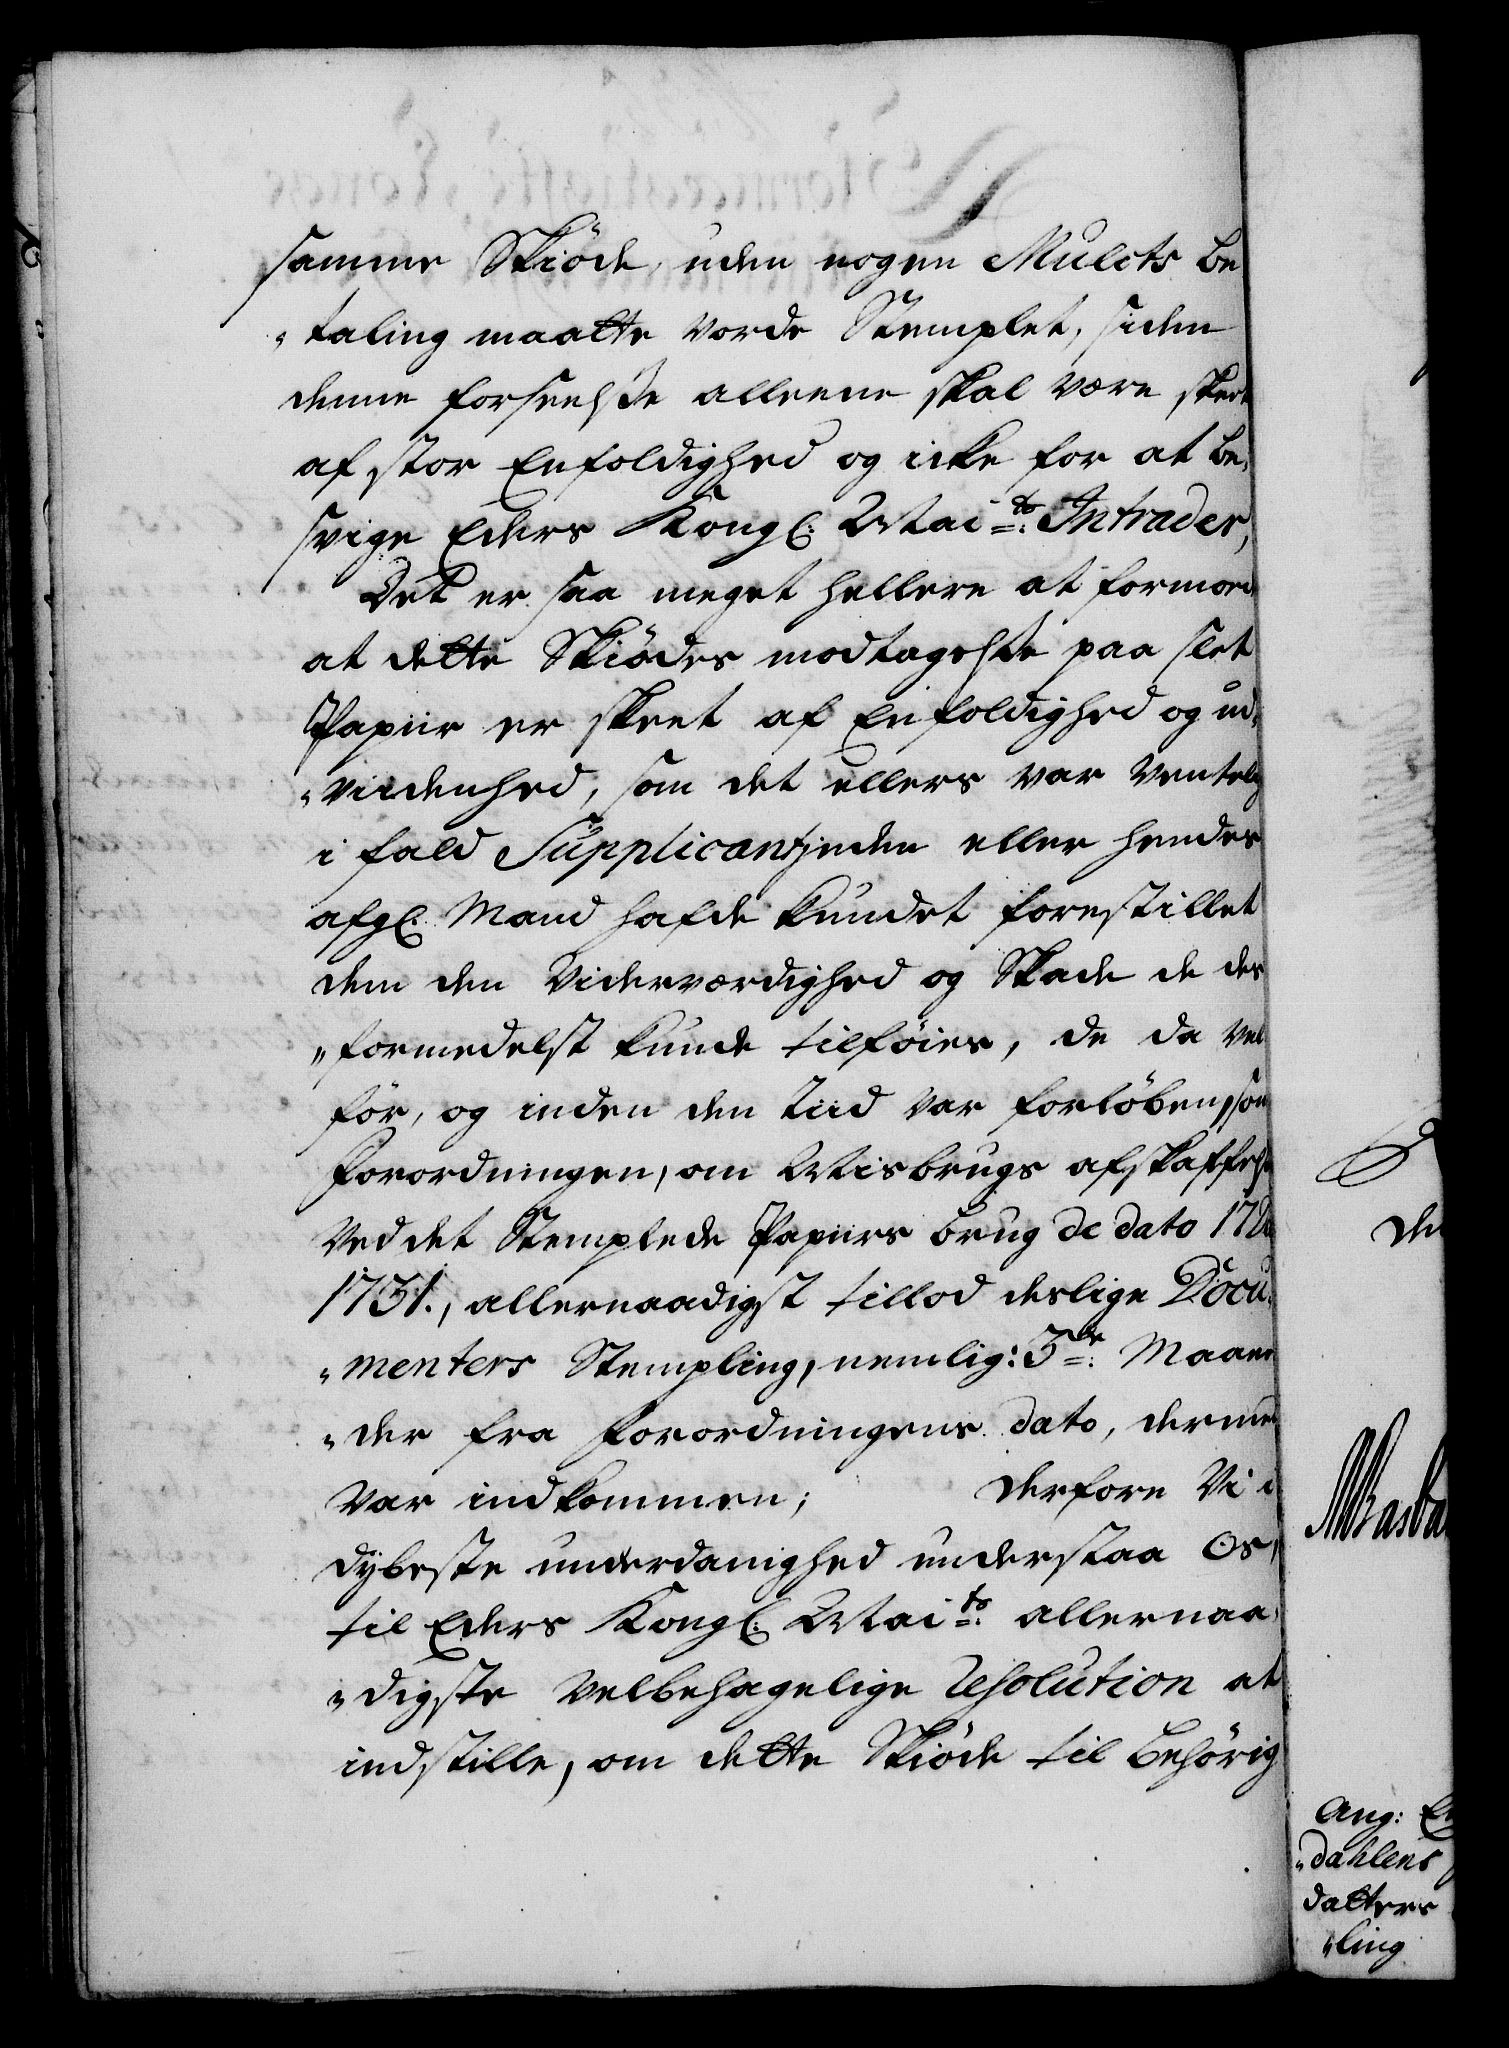 samme Skiöde, uden nogen Mulcts be
„taling maatte vorde Stemplet, siden
denne forseelsse alleene skal være skeed
af stor Enfoldighed og icke for at be„
svige Eders Kongl: Mai:ts Intrader,
Det er saa meget hellere at formode
at dette Skiödes modtagelsse paa slet
Papiir er skeet af Enfoldighed og u„
„viidenhed, som det ellers var ventelig
i fald Supplicantinden eller hendes
afgl: Mand hafde kundet forestillet
dem den Viderværdighed og Skade de der
„formedelst kunde tilföies, de da vel
för, og inden den tiid var forlöben, som
Forordningen, om Misbrugs afskaffelse
ved det Stemplede Papiirs brug de dato
1731., allernaadigst tillod deslige Docu„
„menters Stempling, nemlig: 3de: Maane
„der fra Forordningens dato, dermed
var indkommen; derfore Vi i
dybeste underdanighed understaa Os,
til Eders Kongl: Mai:ts allernaa„
„digste velbehagelige Resolution at
indstille, om dette Skiöde til behörig
Ang:
„dahlens
datters
„ling